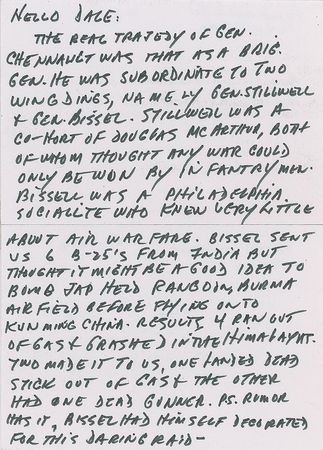 HELLO DALE:
THE REAL TRATEDY OF GEN.
CHENNAULT WAS THAT AS A BRIG.
GEN. HE WAS SUBORDINATE TO TWO
WINGDINGS, NAMELY GEN. STILLWELL
& GEN. BISSEL. STILLWELL WAS A
CO-HORT OF DOUGLAS MCARTHUR, BOTH
OF WHOM THOUGHT ANY WAR COULD
ONLY BE WON BY INFANTRY MEN.
BISSELL WAS A PHILADELPHIA
SOCIALITE WHO KNEW VERY LITTLE
ABOUT AIR WARFARE. BISSEL SENT
US 6 B-25'S FROM INDIA BUT
THOUGHT IT MIGHT BE A GOOD IDEA TO
BOMB JAP HELD RANGOON, BURMA
AIRFIELD BEFORE FLYING ONTO
KUNMING CHINA. RESULTS, 4 RAN OUT
OF GAS & CRASHED IN THE HIMALAYAT.
TWO MADE IT TO US, ONE LANDED DEAD
STICK OUT OF GAS & THE OTHER
HAD ONE DEAD GUNNER. P.S. RUMOR
HAS IT, BISSEL HAD HIMSELF DECORATED
FOR THIS DARING RAID —